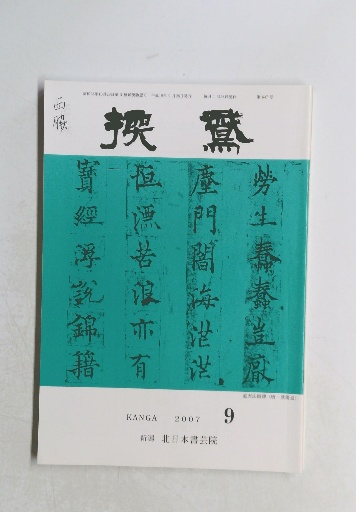 換鵞
勞生蠢蠢豈厭
塵門闇海茫茫
恒漂苦浪亦有
寶經浮說錦籍
KANGA 2007 9
新潟 北日本書芸院